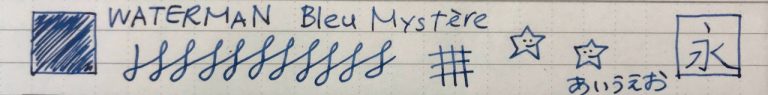 WATERMAN Bleu Mystère
あいうえお
永